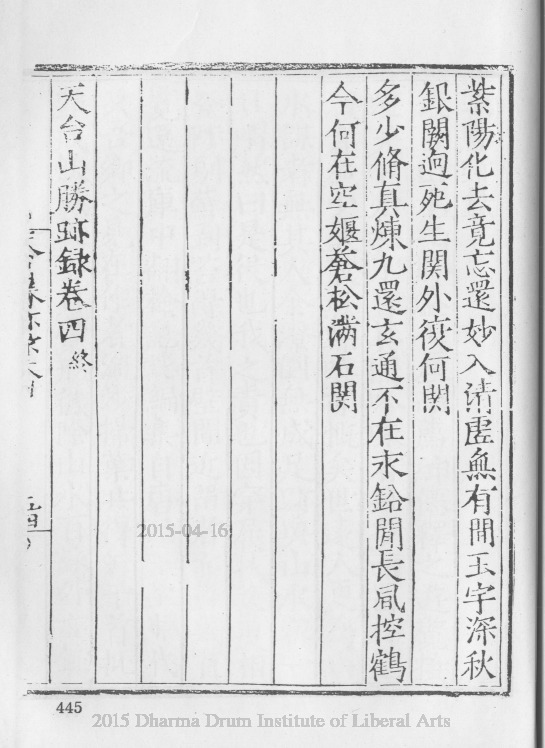 紫陽化去竟忘還妙入清虛無有間玉宇深秋
銀闕逈死生関外彼何関
多少脩真煉九還玄通不在汞鉛閒長凮控鶴
今何在空蒼松滿石関
天台山勝跡錄卷四終
445
2015-04-16
2015 Dharma Drum Institute of Liberal Arts